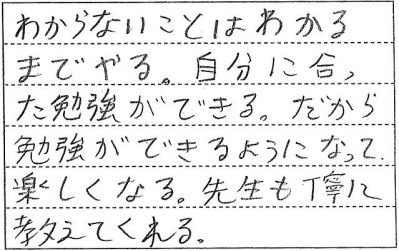 わからないことはわかる
までやる。自分に合っ
た勉強ができる。だから
勉強ができるようになって、
楽しくなる。先生も丁寧に
教えてくれる。